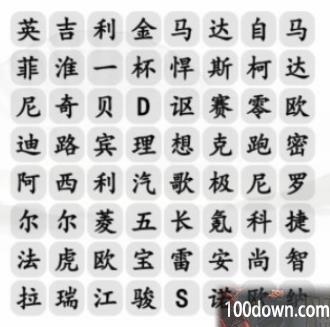 英吉利金马达自马
菲淮一杯悍斯柯达
尼奇贝D讴赛零欧
迪路宾理想克跑密
阿西利汽歌极尼罗
尔尔菱五长氪科捷
法虎欧宝雷安尚智
拉瑞江骏S诺欧纳
100down.com